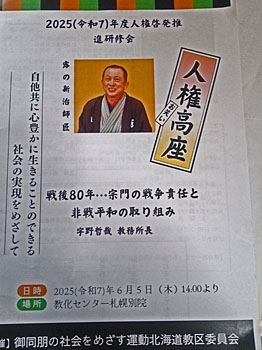 2025(令和7)年度人権啓発推
進研修会
露の新治師匠
人権高座
自他共に心豊かに生きることのできる
社会の実現をめざして
戦後80年…宗門の戦争責任と
非戦平和の取り組み
宇野哲哉 教務所長
日時 2025(令和7)年6月5日(木)14:00より
場所 教化センター札幌別院
催】御同朋の社会をめざす運動北海道教区委員会